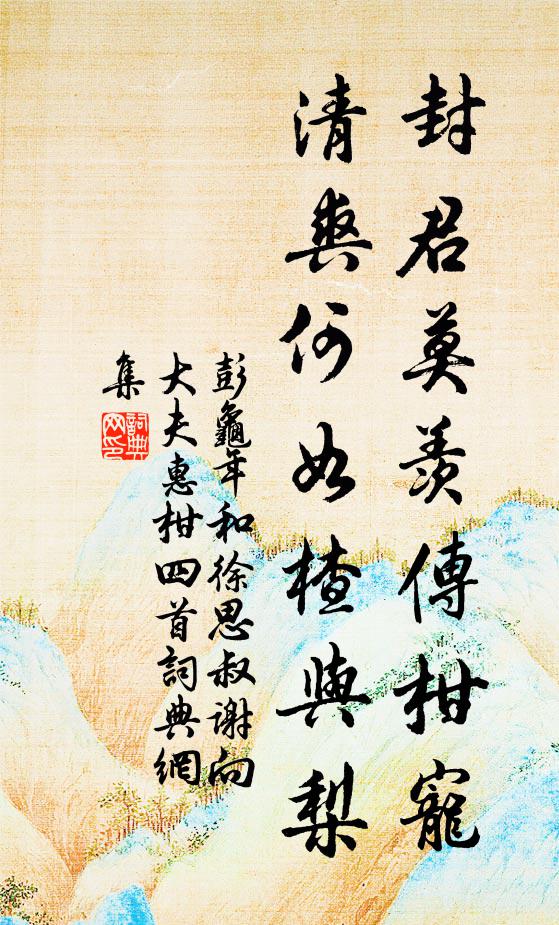 封君莫羨傳柑寵
清爽何如楂與梨
彭龜年和徐思叔謝向
大夫惠柑四首詞典網
集
詞典
网印